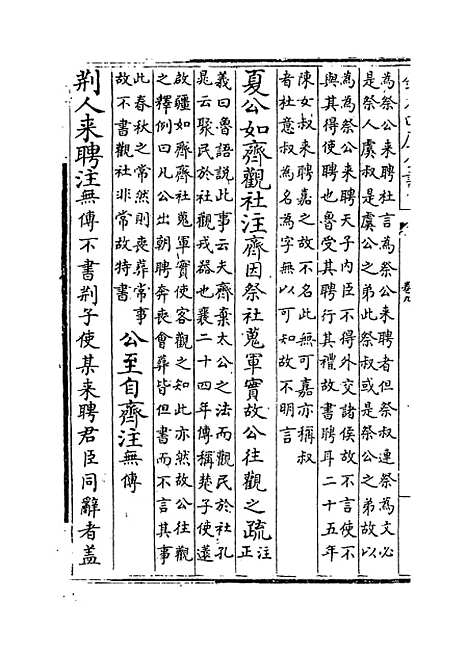 為祭公来聘杜言為祭公来聘者但祭叔連祭為文必
是祭人虞叔是虞公之弟此祭叔或是祭公之弟故以
為為祭公来聘天子内臣不得外交諸侯故不言使不
與其得使聘也魯受其聘行其禮故書聘耳二十五年
陳女叔来聘嘉之故不名此無可嘉亦稱叔
者杜意叔為名為字無以可知故不明言
夏公如齊觀社注齊因祭社蒐軍實故公往觀之疏注正
義曰魯語說此事云夫齊棄太公之法而觀民於社孔
晁云聚民於社觀戎器也襄二十四年傳稱楚子使薳
啟疆如齊齊社蒐軍實使客觀之知此亦然故公往觀
之釋例曰凡公出朝聘奔喪會葬皆但書而不言其事
此春秋之常然則喪葬常事
故不書觀社非常故特書
公至自齊注無傳
荆人来聘注無傳不書荆子使某来聘君臣同辭者蓋